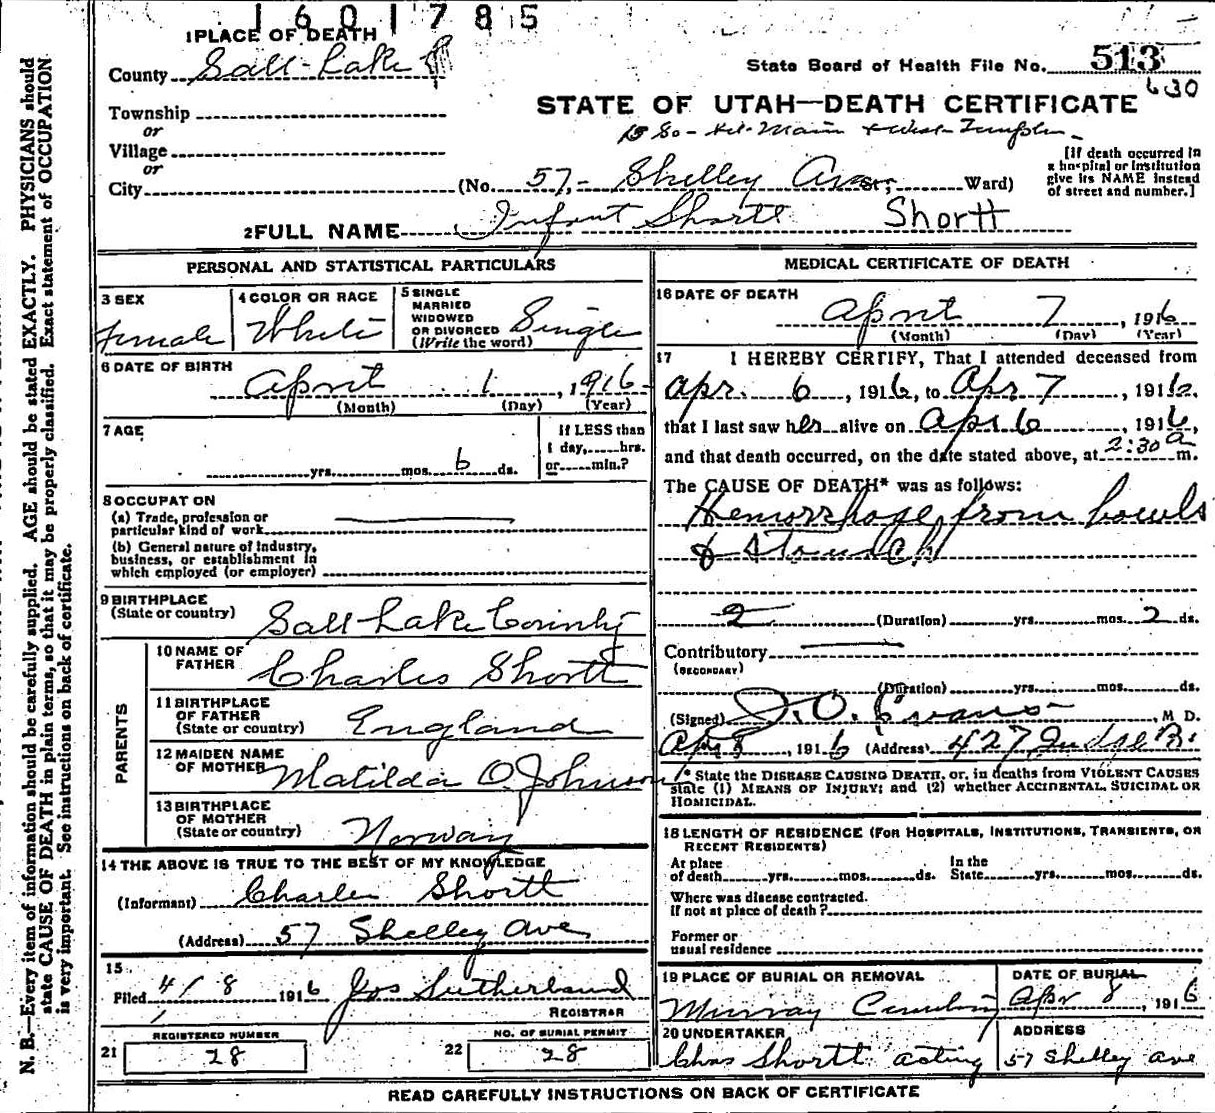 1601785
1 PLACE OF DEATH
County Salt Lake
State Board of Health File No. 513
630
STATE OF UTAH—DEATH CERTIFICATE
Township
or
Village
or
City (No. 57,- Shelley Ave St; Ward)
[If death occurred in
a hospital or institution
give its NAME instead
of street and number.]
2 FULL NAME Infant Shortt Shortt
PERSONAL AND STATISTICAL PARTICULARS
3 SEX
Female
4 COLOR OR RACE
White
5 SINGLE
MARRIED
WIDOWED
OR DIVORCED
(Write the word)
Single
6 DATE OF BIRTH
April 1, 1916
(Month) (Day) (Year)
7 AGE
yrs. mos. 6 ds.
If LESS than
1 day, hrs.
or min.?
8 OCCUPATION
(a) Trade, profession or
particular kind of work
(b) General nature of Industry,
business, or establishment in
which employed (or employer)
9 BIRTHPLACE
(State or country)
Salt Lake County
PARENTS
10 NAME OF
FATHER
Charles Shortt
11 BIRTHPLACE
OF FATHER
(State or country)
England
12 MAIDEN NAME
OF MOTHER
Matilda O. Johnson
13 BIRTHPLACE
OF MOTHER
(State or country)
Norway
14 THE ABOVE IS TRUE TO THE BEST OF MY KNOWLEDGE
(Informant) Charles Shortt
(Address) 57 Shelley Ave
15
Filed 4/8 1916 Jos Sutherland
REGISTRAR
REGISTERED NUMBER
21 28
NO. OF BURIAL PERMIT
22 28
MEDICAL CERTIFICATE OF DEATH
16 DATE OF DEATH
April 7, 1916
(Month) (Day) (Year)
17 I HEREBY CERTIFY, That I attended deceased from
Apr. 6, 1916, to Apr 7, 1916.
that I last saw her alive on Apr 6, 1916,
and that death occurred, on the date stated above, at 2:30 a m.
The CAUSE OF DEATH* was as follows:
Hemorrhage from bowels
& stomach
2 (Duration) yrs. mos. 2 ds.
Contributory
(SECONDARY)
(Duration) yrs. mos. ds.
(Signed) J. O. Evans, M D.
Apr 8, 1916 (Address) 427 Judge B.
* State the DISEASE CAUSING DEATH, or, in deaths from VIOLENT CAUSES
state (1) MEANS OF INJURY; and (2) whether ACCIDENTAL, SUICIDAL OR
HOMICIDAL.
18 LENGTH OF RESIDENCE (FOR HOSPITALS, INSTITUTIONS, TRANSIENTS, OR
RECENT RESIDENTS)
At place
of death yrs. mos. ds.
In the
State yrs. mos. ds.
Where was disease contracted.
If not at place of death?
Former or
usual residence
19 PLACE OF BURIAL OR REMOVAL
Murray Cemetery
DATE OF BURIAL
Apr 8, 1916
20 UNDERTAKER
Chas Shortt acting
ADDRESS
57 Shelley Ave
READ CAREFULLY INSTRUCTIONS ON BACK OF CERTIFICATE
N. B.—Every item of information should be carefully supplied. AGE should be stated EXACTLY. PHYSICIANS should
state CAUSE OF DEATH in plain terms, so that it may be properly classified. Exact statement of OCCUPATION
is very important. See instructions on back of certificate.